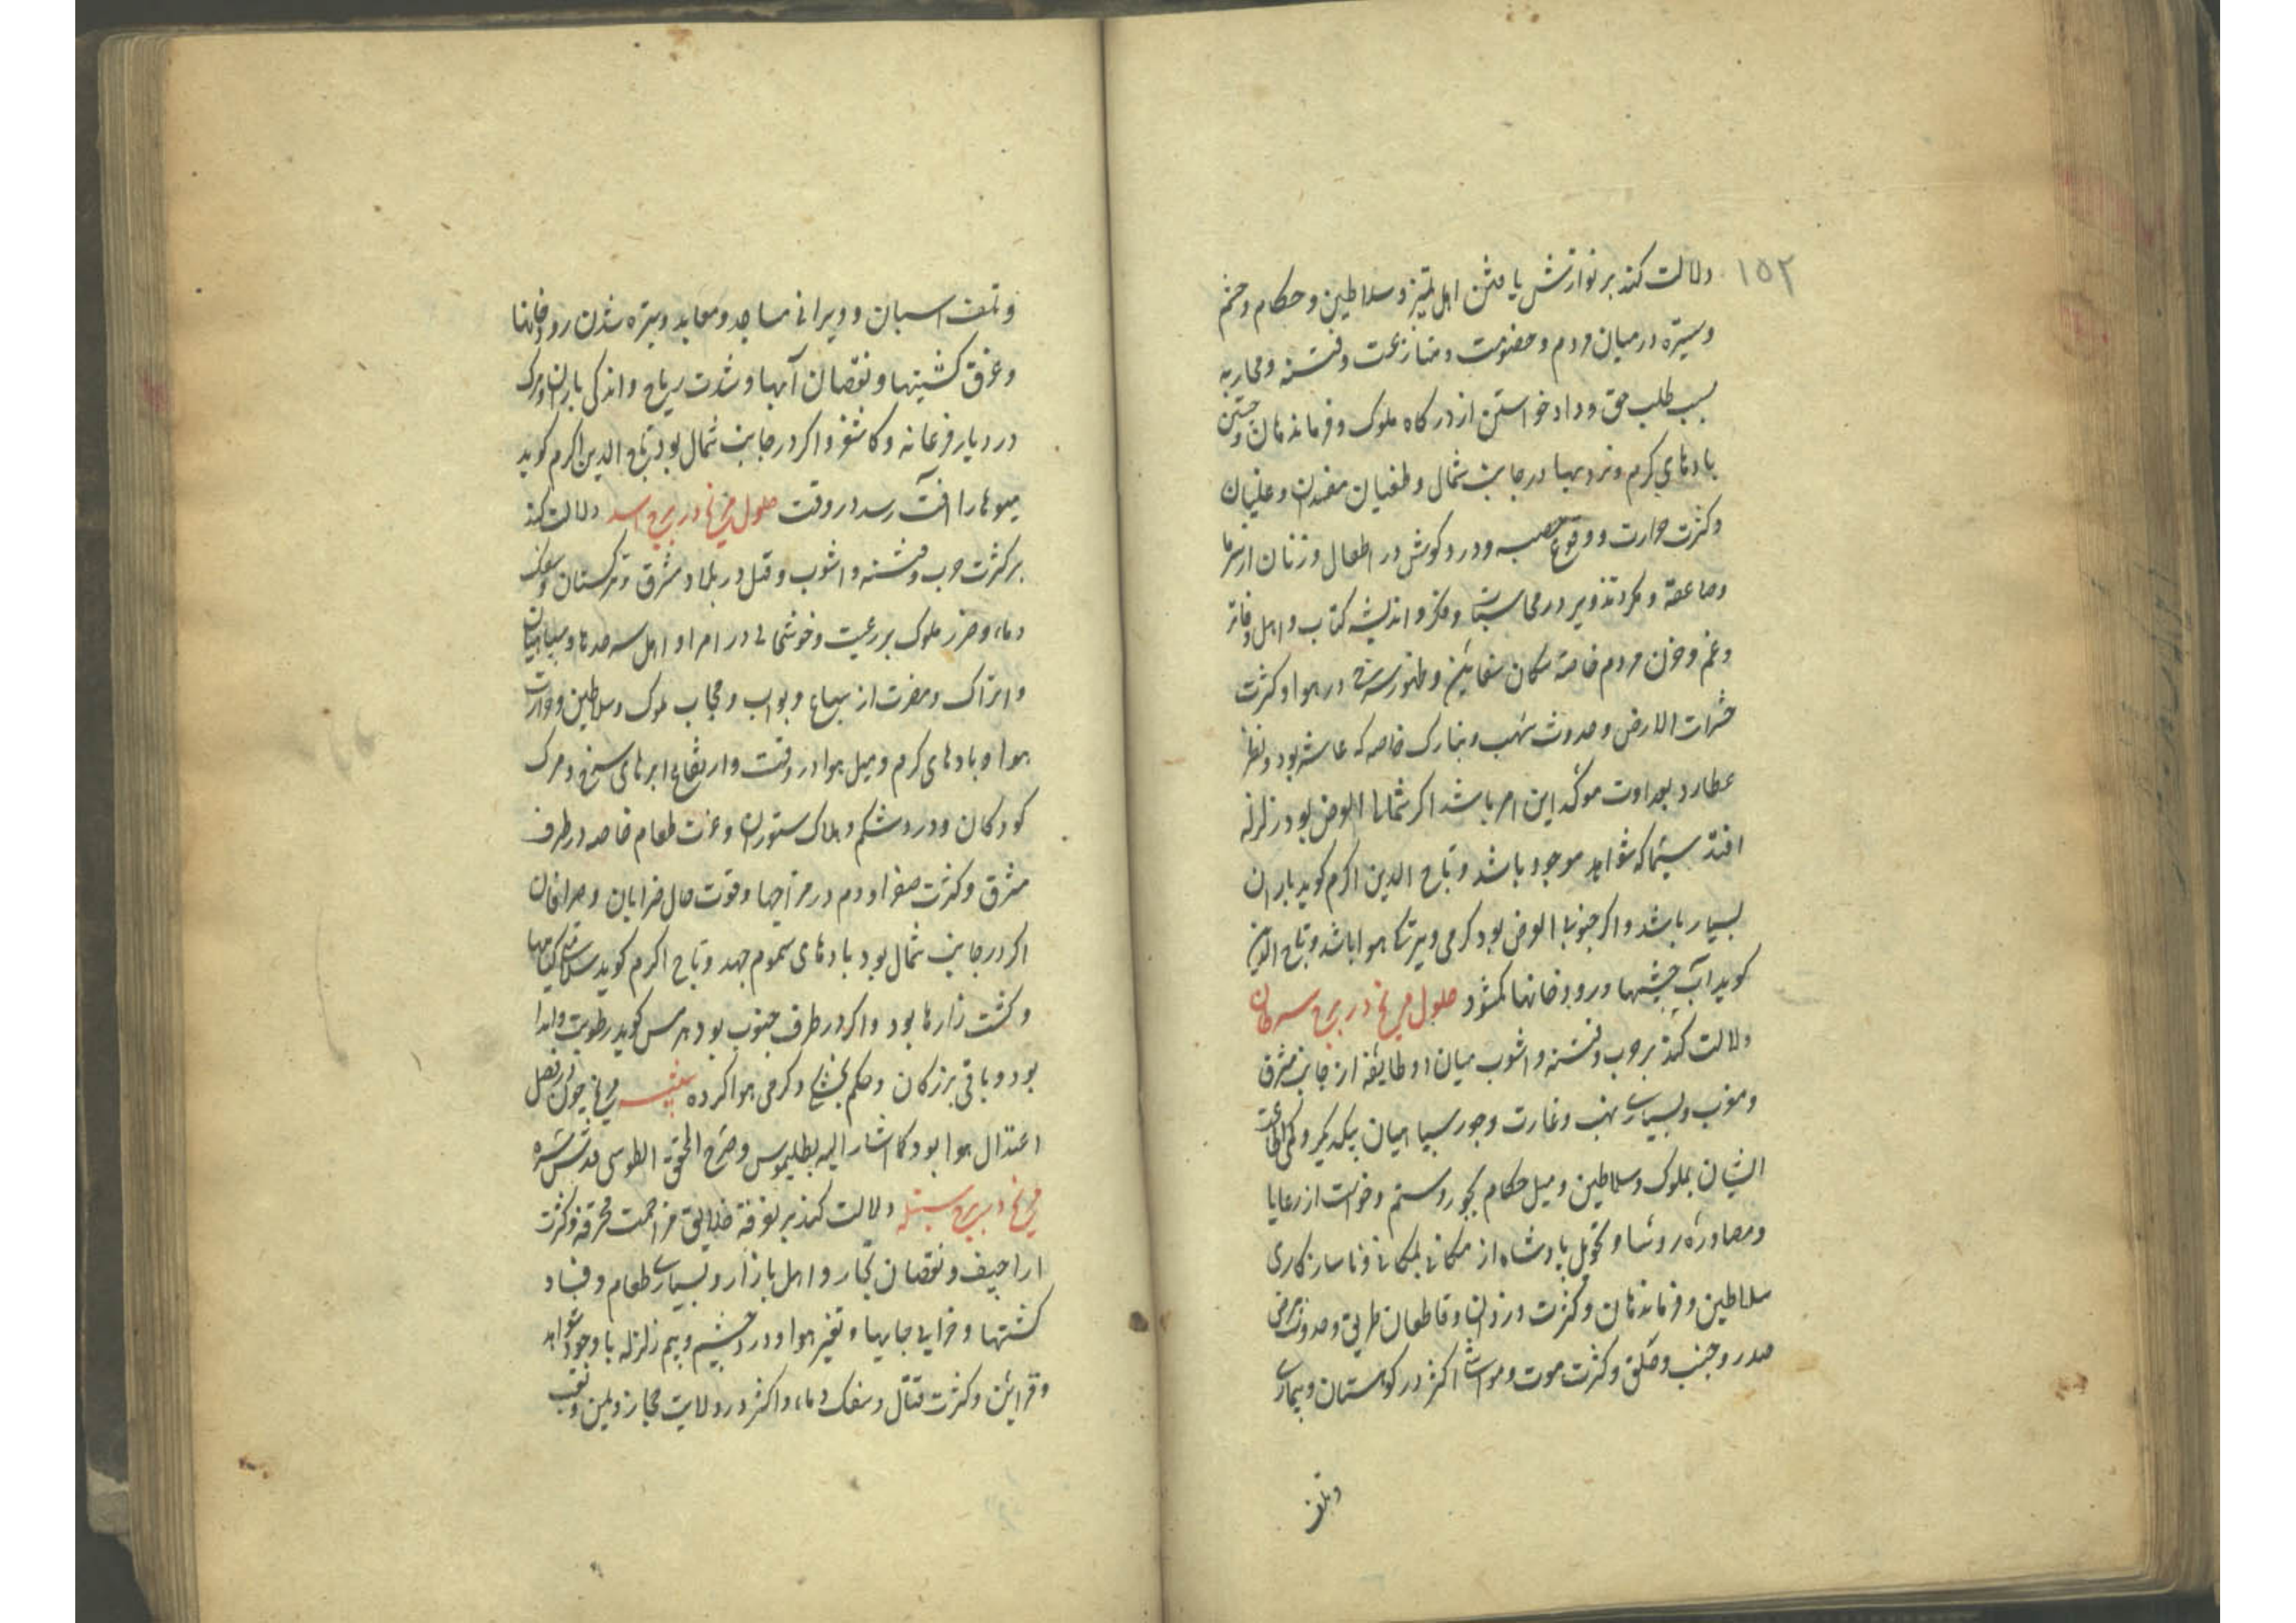 ۱۵۲
دلالت کند بر نوازش یافتن اهل تمیز و سلاطین و حکام و خشم
و ستیزه در میان مردم و خصومت و منازعت و فتنه و محاربه
بسبب طلب حق و داد خواستن از درکاه ملوک و فرماندهان و جستن
بادهای کرم و نزدیها در جانب شمال و طغیان مفسدان و غلیان
و کثرت حرارت و وقوع حصبه و درد کوش در اطفال و زنان از سرما
و صاعقه و مکر و تذویر در محاسبات و فکر و اندیشه کتاب و اهل دفاتر
و غم و حزن مردم خاصه سکان سفاین و ظهور سرخی در هوا و کثرت
حشرات الارض و حدوث شهب و نیازک خاصه که عاشر بود و نظر
عطارد بعداوت موکد این امر باشد اکر شمالی العرض بود زلزله
افتد سیما که شواهد موجود باشد و تاج الدین اکرم کوید باران
بسیار باشد و اکر جنوبی العرض بود کرمی و تیرکی هوا باشد و تاج الدین
کوید آب چشمها و رودخانها کم شود حلول مریخ در برج سرطان
دلالت کند بر حرب و فتنه و اشوب میان دو طایفه از جانب مشرق
و مغرب و بسیاری نهب و غارت و جور سپاهیان بیکدیکر و کم اطاعت
ایشان بملوک و سلاطین و میل حکام بجور و ستم و خواست از رعایا
و مصادره روسا و تحویل پادشاه از مکانی بمکانی و ناسازکاری
سلاطین و فرماندهان و کثرت دزدان و قاطعان طریق و حدوث مرض
صدر و جنب و حلق و کثرت موت و مواشی اکثر در کوهستان و بیماری
و تلف
و تلف اسبان و ویرانی مساجد و معابد و تیره شدن رودخانها
و غرق کشتیها و نقصان آبها و شدت ریاح و اندکی باران و مرک
در دیار فرغانه و کاشغر و اکر در جانب شمال بود تاج الدین اکرم کوید
میوها را آفت رسد در وقت حلول مریخ در برج اسد دلالت کند
بر کثرت حرب و فتنه و اشوب و قتل در بلاد مشرق و ترکستان و سفک
دماء و ضرر ملوک بر رعیت و خوشحالی در امرا و اهل سرحدها و سپاهیان
و اتراک و مضرت از سباع و بواب و حجاب ملوک و سلاطین و حرارت
هوا و بادهای کرم و میل هوا در وقت و ارتفاع ابرهای سرخ و مرک
کودکان و درد شکم و هلاک ستوران و عزت طعام خاصه در طرف
مشرق و کثرت صفرا و دم در مزاجها و قوت حال ضرابان و صرافان
اکر در جانب شمال بود بادهای سموم جهد و تاج اکرم کوید سلامت کیاهها
و کشت زارها بود و اکر در طرف جنوب بود هرمس کوید رطوبت و اندا
بود و باقی بزرکان حکم بخشکی و کرمی هوا کرده تنبیه مریخ چون در فصل
اعتدال هوا بود کما اشار الیه بطلیموس و صرح المحقق الطوسی قدس سره
مریخ در برج سنبله دلالت کند بر تفرقه خلایق مزاحمت محرقه و کثرت
اراجیف و نقصان تجار و اهل بازار و بسیاری طعام و فساد
کشتها و خرابی جایها و تغیر هوا و درد چشم و بیم زلزله با وجود شواهد
و قراین و کثرت قتال و سفک دماء و اکثر در ولایت حجاز و یمن و نقب